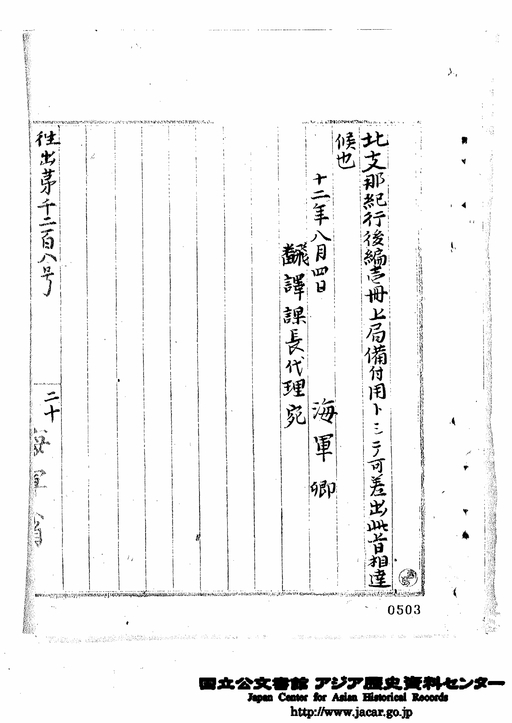 北支那紀行後編壱冊上局備付用トシテ可差出此旨相達
候也
十二年八月四日
海軍卿
飜譯課長代理宛
往出第千二百八号
二十
0503
国立公文書館 アジア歴史資料センター
Japan Center for Asian Historical Records
http://www.jacar.go.jp